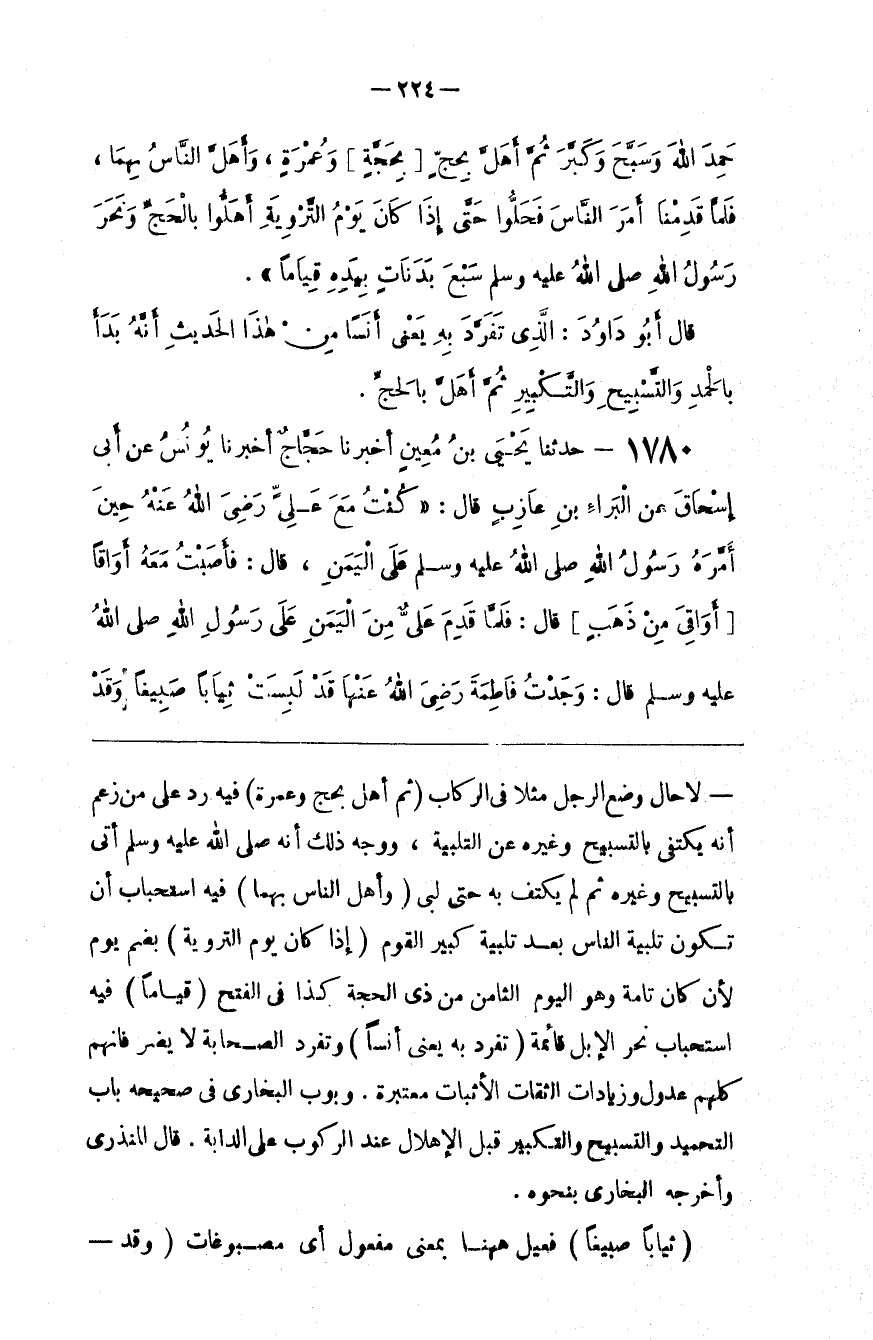 — ٢٢٤ —
حَمِدَ اللهَ وَسَبَّحَ وَكَبَّرَ ثُمَّ أَهَلَّ بِحجٍّ [ بِحَجَّةٍ ] وَعُمْرَةٍ ، وَأَهَلَّ النَّاسُ بِهِمَا ،
فَلَمَّا قَدِمْنَا أَمَرَ النَّاسَ فَحَلُّوا حَتَّى إِذَا كَانَ يَوْمُ التَّرْوِيَةِ أَهَلُّوا بالْحَجِّ وَنَحَرَ
رَسُولُ اللهِ صلى اللهُ عليه وسلم سَبْعَ بَدَنَاتٍ بِيَدِهِ قِيَاماً » .
قال أَبُو دَاوُدَ : الَّذِى تَفَرَّدَ بِهِ يَعْنى أَنَسًا مِنْ هٰذَا الحَديثِ أَنَّهُ بَدَأَ
بالحْمدِ وَالتَّسْبِيحِ وَالتَّكْبِيرِ ثُمَّ أَهَلَّ بالحجِّ .
١٧٨٠ — حدثنا يَحْيَى بنُ مُعِينٍ أخبرنا حَجَّاجٌ أخبرنا يُونُسُ عن أَبى
إِسْحَاقَ عن الْبَرَاءِ بنِ عَازِبٍ قال : « كُنْتُ مَعَ عَلِيٍّ رَضِىَ اللهُ عَنْهُ حِينَ
أَمَّرَهُ رَسُولُ اللهِ صلى اللهُ عليه وسلم عَلَى الْيَمَنِ ، قال : فأَصَبْتُ مَعَهُ أَوَاقاً
[ أَوَاقِىَ مِنْ ذَهَبٍ ] قال : فَلَمَّا قَدِمَ عَلىٌّ مِنَ الْيَمَنِ عَلَى رَسُولِ اللهِ صلى اللهُ
عليه وسلم قال : وَجَدْتُ فَاطِمَةَ رَضِىَ اللهُ عَنْهَا قَدْ لَبِسَتْ ثِيَاباً صَبِيغاً وَقَدْ
— لاحال وضع الرجل مثلا فى الركاب ( ثم أهل بحج وعمرة ) فيه رد على من زعم
أنه يكتفى بالتسبيح وغيره عن التلبية ، ووجه ذلك أنه صلى الله عليه وسلم أتى
بالتسبيح وغيره ثم لم يكتف به حتى لبى ( وأهل الناس بهما ) فيه استحباب أن
تكون تلبية الناس بعد تلبية كبير القوم ( إذا كان يوم التروية ) بضم يوم
لأن كان تامة وهو اليوم الثامن من ذى الحجة كذا فى الفتح ( قياماً ) فيه
استحباب نحر الإبل قائمة ( تفرد به يعنى أنساً ) وتفرد الصحابة لا يضر فانهم
كلهم عدول وزيادات الثقات الأثبات معتبرة . وبوب البخارى فى صحيحه باب
التحميد والتسبيح والتكبير قبل الإهلال عند الركوب على الدابة . قال المنذرى
وأخرجه البخارى بنحوه .
( ثياباً صبيغاً ) فعيل ههنا بمعنى مفعول أى مصبوغات ( وقد —